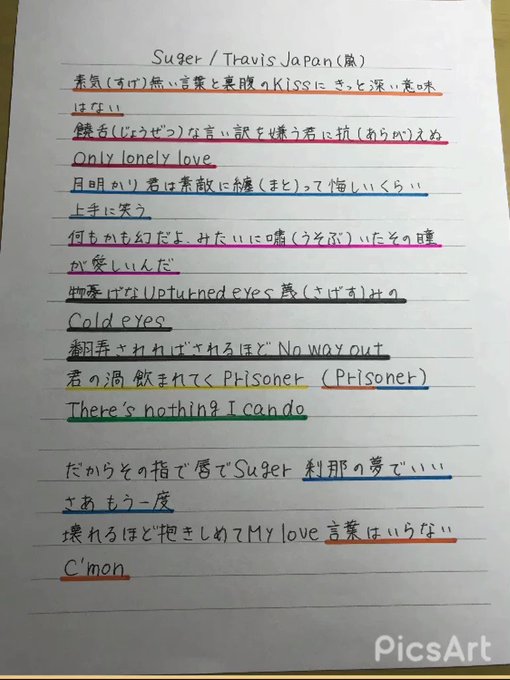 Suger / Travis Japan(風)
素気(すげ)無い言葉と裏腹のKissに きっと深い意味
はない
饒舌(じょうぜつ)な言い訳を嫌う君に抗(あらが)えぬ
Only lonely love
月明かり 君は素敵に纏(まと)って悔しいくらい
上手に笑う
何もかも幻だよ、みたいに嘯(うそぶ)いたその瞳
が愛しいんだ
物憂げなUpturned eyes 蔑(さげす)みの
Cold eyes
翻弄されればされるほど No way out
君の渦 飲まれてく Prisoner (Prisoner)
There's nothing I can do
だからその指で唇でSuger 刹那の夢でいい
さあ もう一度
壊れるほど抱きしめてMy love 言葉はいらない
C'mon
PicsArt